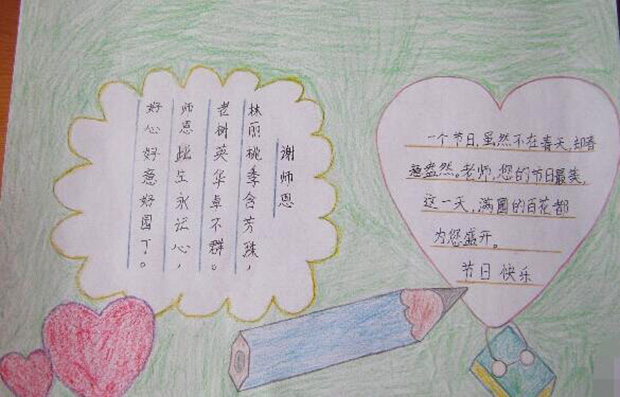 谢师恩
林丽桃李含芳珠，
老树英华卓不群。
师恩生永记心，
好心好意好园丁。
一个节日,虽然不在春天,却春
意盎然。老师,您的节日最美,
这一天,满园的百花都
为您盛开。
节日快乐